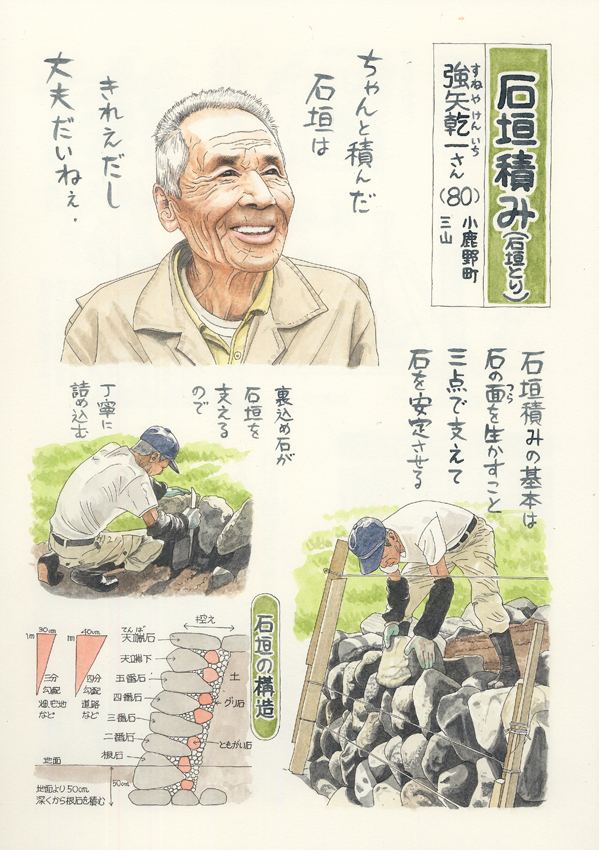 石垣積み(石垣とり)
すねや けん いち
強矢乾一さん(80)
小鹿野町
三山
ちゃんと積んだ
石垣は
きれえだし
大夫だいねぇ.
石垣積みの基本は
つら
石の面を生かすこと
三点で支えて
石を安定させる
裏込め石が
石垣を
支える
ので
丁寧に
詰め込む
石垣の構造
30cm
1m
三分
勾配
畑、宅地
など
40cm
1m
四分
勾配
道路
など
控え
てんば
天端石
天端下
五番石
四番石
三番石
二番石
根石
土
グリ石
ともがい石
地面
50cm
地面より50cm
深くから根石を積む